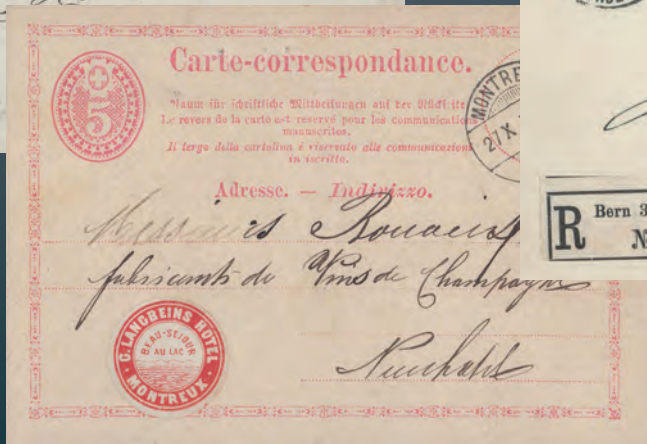 5
Carte-correspondance.
Raum für schriftliche Mittheilungen auf der Rückseite
Le revers de la carte est reservé pour les communications
manuscrites.
Il tergo della cartolina é riservato alle communicazioni
in iscritto.
MONTRE
27 X
Adresse. — Indirizzo.
Messieurs
fabricants de Vins de Champagne
Neuchatel
C. LANGBEINS HÔTEL
BEAU-SEJOUR
AU LAC
MONTREUX
R Bern 3
N